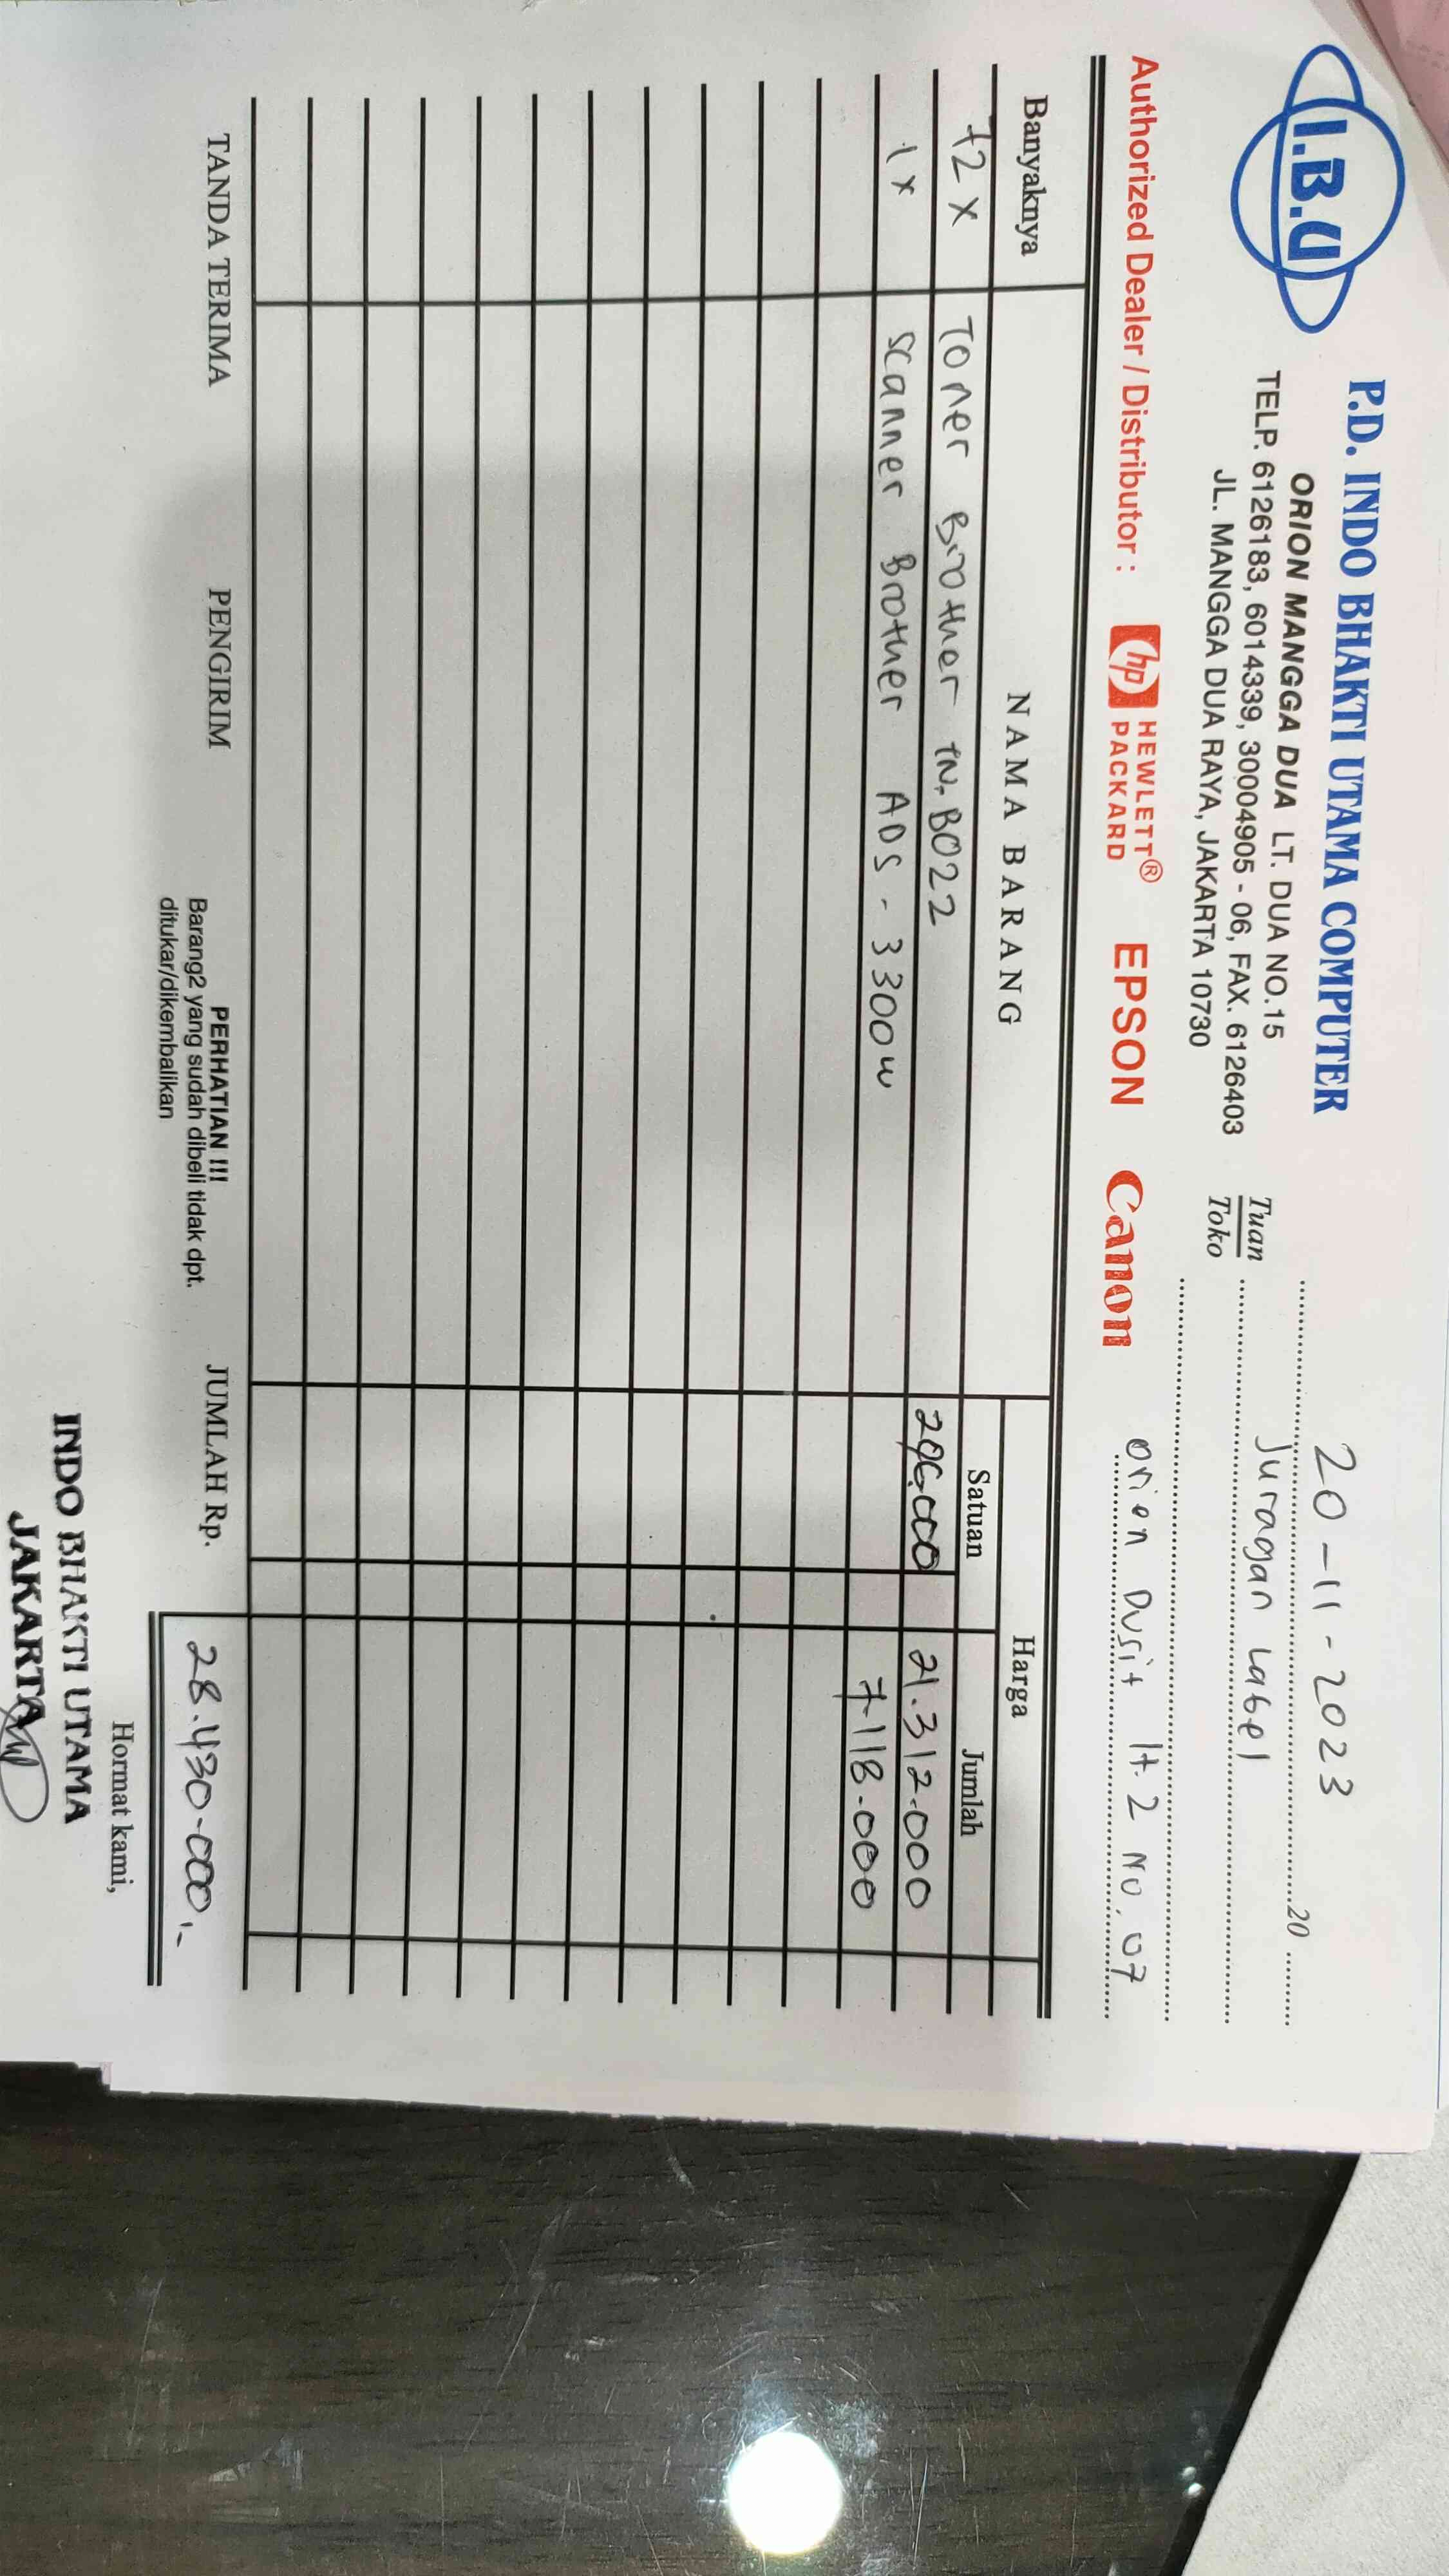 I.B.U
P.D. INDO BHAKTI UTAMA COMPUTER
ORION MANGGA DUA LT. DUA NO.15
TELP. 6126183, 6014339, 30004905 - 06, FAX. 6126403
JL. MANGGA DUA RAYA, JAKARTA 10730
20 - 11 - 2023 20
Tuan Juragan Label
Toko
Orion Dusit lt. 2 NO. 07
Authorized Dealer / Distributor : hp HEWLETT® PACKARD EPSON Canon
Banyaknya NAMA BARANG Harga
Satuan Jumlah
72 x Toner Brother TN. B022 296.000 21.312.000
1 x Scanner Brother ADS - 3300w 7.118.000
TANDA TERIMA PENGIRIM PERHATIAN !!! JUMLAH Rp. 28.430.000,-
Barang2 yang sudah dibeli tidak dpt.
ditukar/dikembalikan
Hormat kami,
INDO BHAKTI UTAMA
JAKARTA